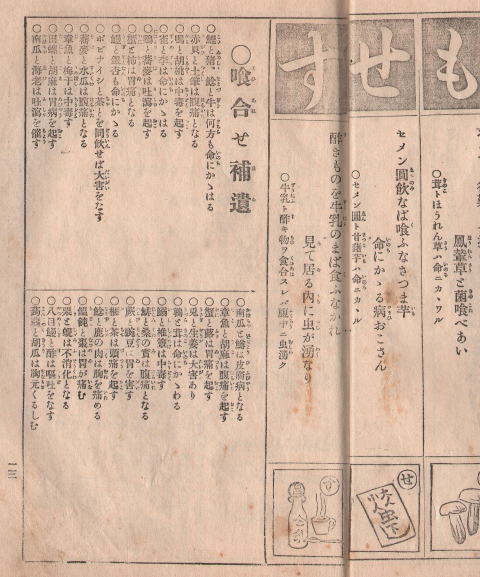 も
せ
す
鳳葦草と菌喰べあい
○茸トほうれん草ハ命ニカヽワル
セメン圓飲なば喰ふなさつま芋
命にかゝる病おこさん
○セメン圓ト甘藷芋ハ命ニカヽル
酢きものを牛乳のまば食ふなかれ
見て居る內に虫が湧なり
○牛乳ト酢キ物ヲ食合スレバ腹中ニ虫湧ク
せ
す
○喰合せ補遺
○鰻と猪、鯰と牛は何方も命にかゝはる
○赤貝と土筆は腹痛となる
○鴨と胡桃は中毒を起す
○雀と李は命にかゝはる
○鷄と蕎麥は吐瀉を起す
○蟹と柿は胃痛となる
○鰻と銀杏も命にかゝる
○ボビナインと茶とを同飮せば大害をなす
○蕎麥と水瓜は腹痛となる
○章魚と梅干は中毒す
○田螺と胡麻は胃病を起す
○南瓜と海老は吐瀉を催す
○南瓜と
は皮膚病となる
○章魚と胡麻は腹痛を起す
○蟹と蕗は胃痛を起す
○兎と生姜は大害あり
○鶉と茸は命にかゝわる
○鰌と椎蕈は中毒す
○鯡と桑の實は腹痛となる
○蕨と豌豆は胃を害す
○榧と茶は頭痛を起す
○鯰と鹿の肉は胸を痛める
○饂飩と棗は胃が痛む
○栗と蜆は不消化となる
○八目鰻と酢は嘔吐をなす
胡瓜は胸元くるしむ
二三